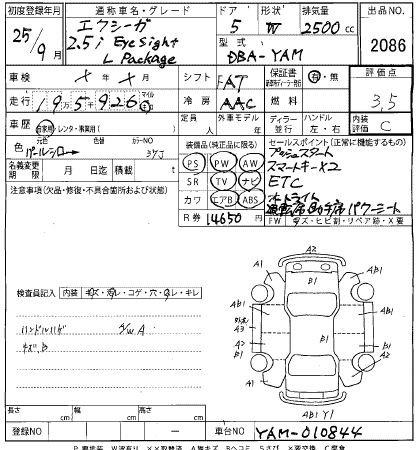 初度登録年月 通称車名・グレード ドア 形状 排気量 出品NO.
25年 9月 エクシーガ 2.5i EyeSight L Package 5 W 2500cc 2086
型式 DBA-YAM
車検 X年 X月 シフト FAT 保証書 有・無 評価点 3,5
走行 195926 マイル km 冷房 AAC 燃料
車歴 自家用・レンタ・事業用( ) 定員 人 外車モデル 年 ディーラー 並行 ハンドル 左・右 内装評価 C
色 元色 パールシロー 色替 カラーNO 37J
名義変更期限 月 日 積載 t
装備品(純正品に限る)
PS PW AW
SR TV ナビ
カワ エアB ABS
R券 14650円
セールスポイント(正常に機能するもの)
プッシュスタート
スマートキーX2
ETC
オートライト
運転席助手席パワーシート
注意事項(欠品・修復・不具合箇所および状態)
FW キズ・ヒビ割・リペア跡・X要
検査員記入 内装 キズ・汚レ・コゲ・穴・キレ
ハンドルハゲ S/W A
キズ,B
A2
A1 B1 A1
AB1 AB1
A3 B1
A2 B1 AB1
A1 A1
AB1 Y1
長さ cm 幅 cm 高さ cm
登録NO ー 車台NO YAM-010844